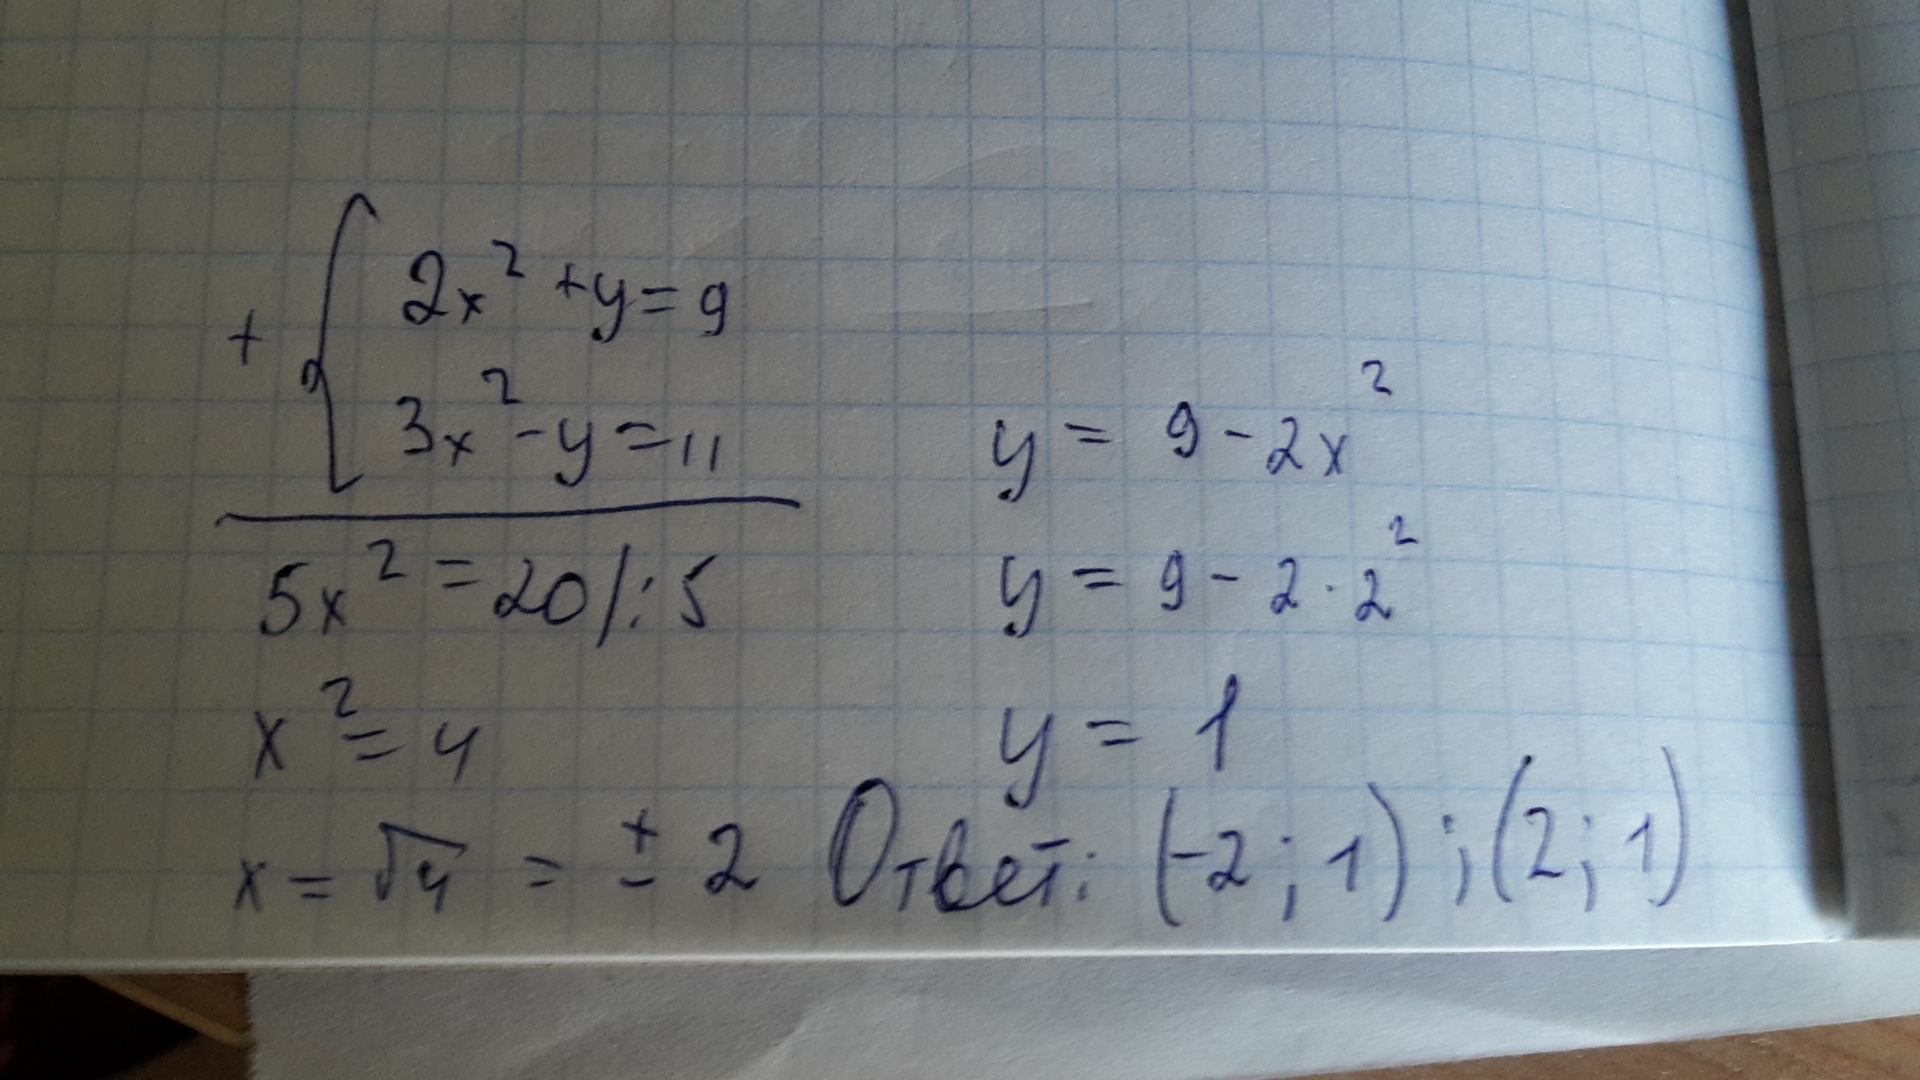 + { 2x² + y = 9
3x² - y = 11
5x² = 20 /: 5
x² = 4
x = √4 = ± 2
y = 9 - 2x²
y = 9 - 2 · 2²
y = 1
Ответ: (-2; 1) ; (2; 1)